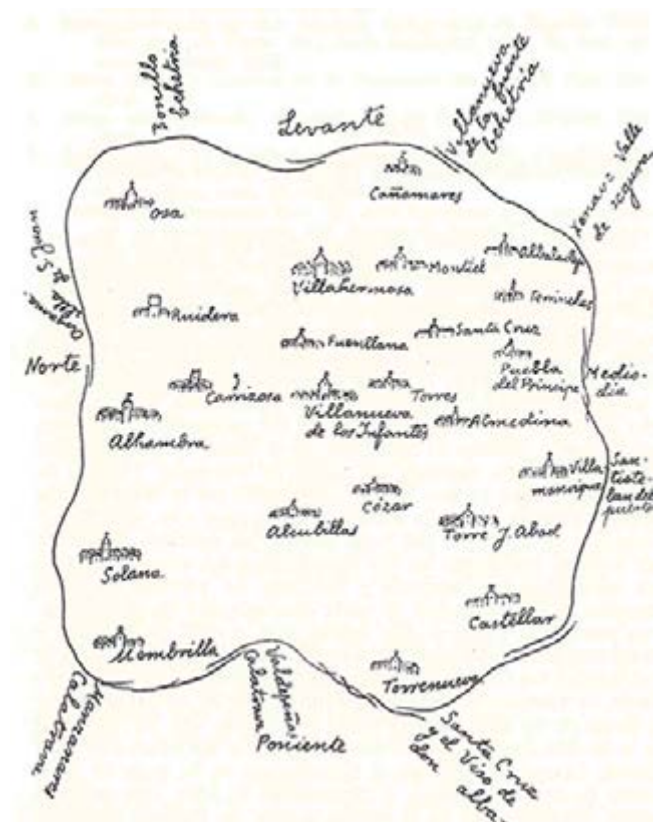 Bonillo
behetria
Levante
Villanueva
de la fuente
behetria
Cañamares
Xenave Valle
de segura
Osa
Villahermosa
Montiel
Albaladejo
Terrinches
Ruidera
Fuenllana
Santa Cruz
Puebla
del Principe
Norte
Medio-
dia
Carrizosa
Villanueva
de los Infantes
Torres
Almedina
Alhambra
Villa-
manrique
San-
tiste-
ban del
puerto
Cózar
Alcubillas
Torre J. Abad
Solana
Castellar
Membrilla
Torrenueva
Manzanares
Calatrava
Valdepeñas
Calatrava
Poniente
Santa Cruz
y el Viso de
don alba-